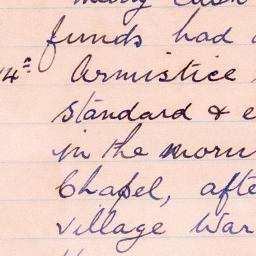 funds had
4ᵃ Armistice
standard & e
in the morn
Chapel, afte
village War